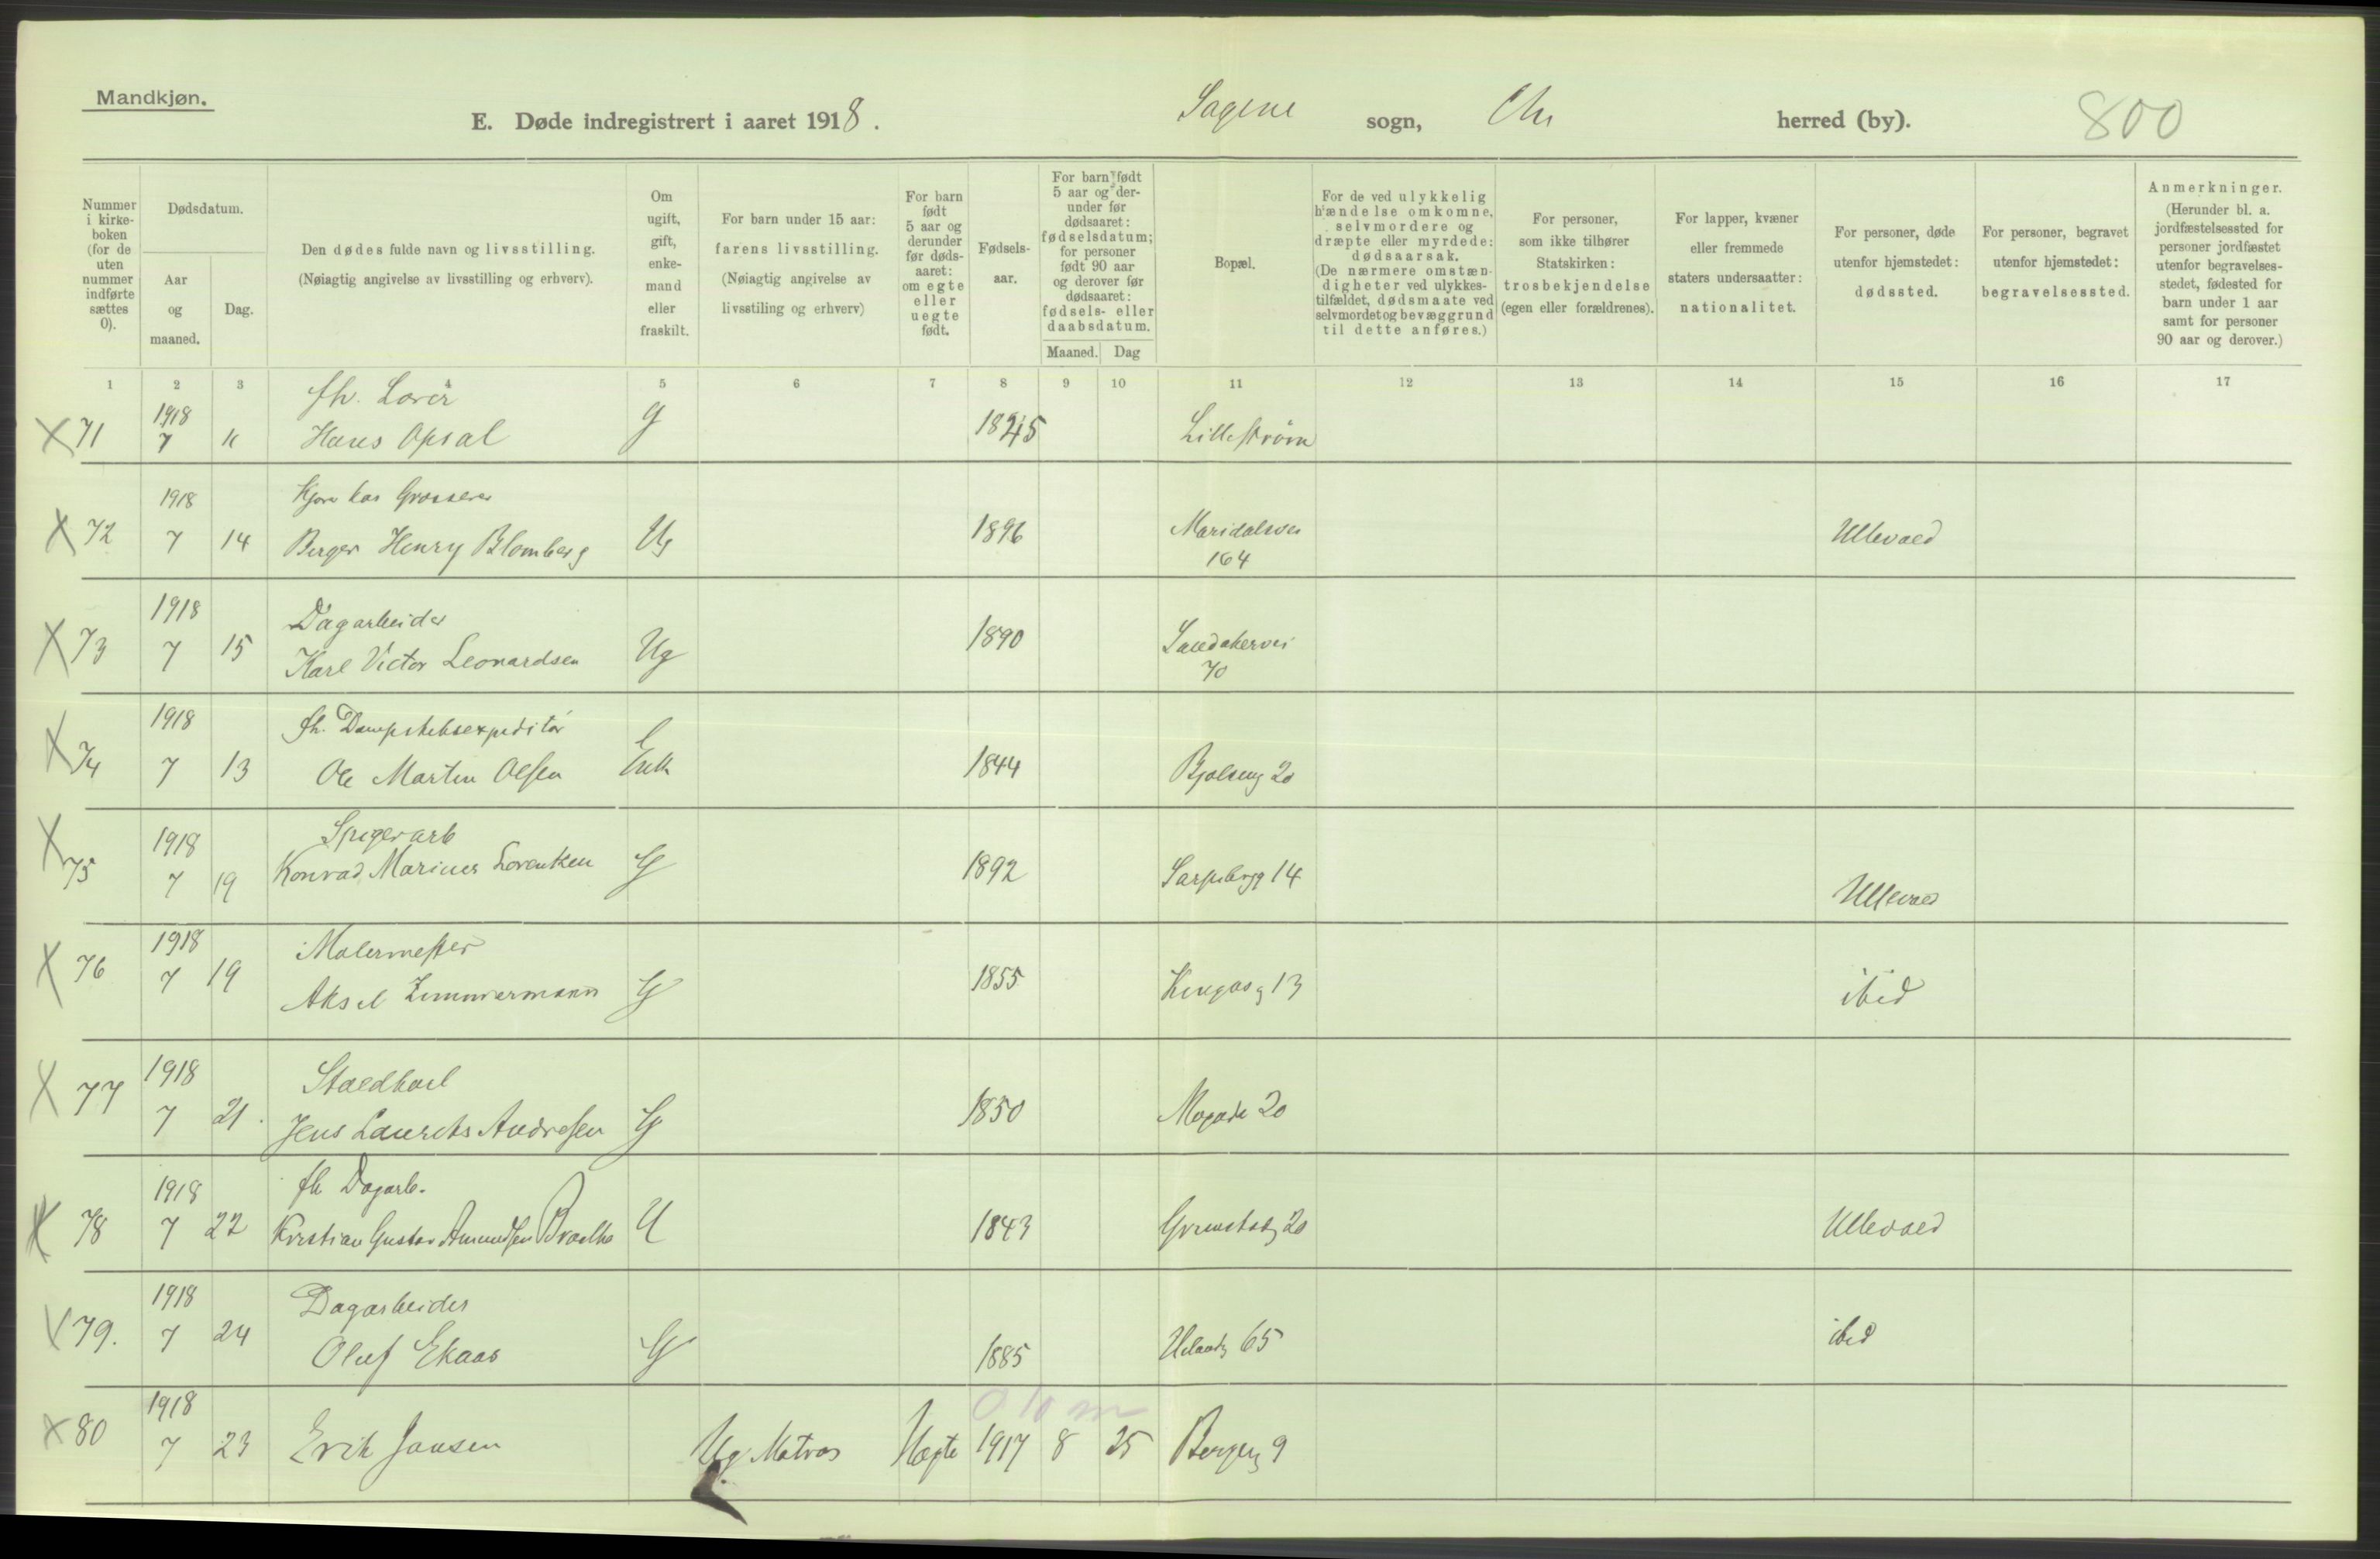 Mandkjøn.
E. Døde indregistrert i aaret 1918. Sagene sogn, Chr herred (by). 800
Nummer i kirkeboken (for de uten nummer indførte sættes 0).
Dødsdatum.
Aar og maaned.
Dag.
Den dødes fulde navn og livsstilling.
(Nøiagtig angivelse av livsstilling og erhverv).
Om ugift, gift, enkemand eller fraskilt.
For barn under 15 aar:
farens livsstilling.
(Nøiagtig angivelse av
livsstiling og erhverv)
For barn født 5 aar og derunder før dødsaaret: om egte eller uegte født.
Fødselsaar.
For barn født 5 aar og derunder før dødsaaret: fødselsdatum; for personer født 90 aar og derover før dødsaaret: fødsels- eller daabsdatum.
Maaned. Dag
Bopæl.
For de ved ulykkelig hændelse omkomne, selvmordere og dræpte eller myrdede: dødsaarsak. (De nærmere omstændigheter ved ulykkestilfældet, dødsmaate ved selvmordet og bevæggrund til dette anføres.)
For personer, som ikke tilhører Statskirken: trosbekjendelse (egen eller forældrenes).
For lapper, kvæner eller fremmede staters undersaatter: nationalitet.
For personer, døde utenfor hjemstedet: dødssted.
For personer, begravet utenfor hjemstedet: begravelsessted.
Anmerkninger. (Herunder bl. a. jordfæstelsessted for personer jordfæstet utenfor begravelsesstedet, fødested for barn under 1 aar samt for personer 90 aar og derover.)
1 2 3 4 5 6 7 8 9 10 11 12 13 14 15 16 17
1918 fh.
X 71 7 11 Hans Opsal g 1845 Lillestrøm
1918 Kjøre hos Grosserer
X 72 7 14 Birger Henry Blomberg Ug 1896 Maridalsvei
164 Ullevaal
1918 Dagarbeider
X 73 7 15 Karl Victor Leonardsen Ug 1890 Sandakervei
70
1918 fh. Dampskibsexpeditør
X 74 7 13 Ole Martin Olsen Enk 1844 Bjølseng 20
1918 Spigerarb
X 75 7 19 Konrad Marius Lorentzen G 1892 Sarpsbgg 14 Ullevaal
1918 Malermester
X 76 7 19 Aksel Zimmermann G 1855 13 ibid
1918 Staldkarl
X 77 7 21. Jens Laurits Andresen G 1850 Mogade 20
1918 fh Dagarb.
X 78 7 22 Kristian Gustav Amundsen U 1843 Grimstadg 20 Ullevaal
1918 Dagarbeider
X 79. 7 24 Oluf Ekaas G 1885 65 ibid
1918 0 10 m
X 80 7 23 Erik Jansen Ug. Matros Uægte 1917 8 25 Bergeng 9